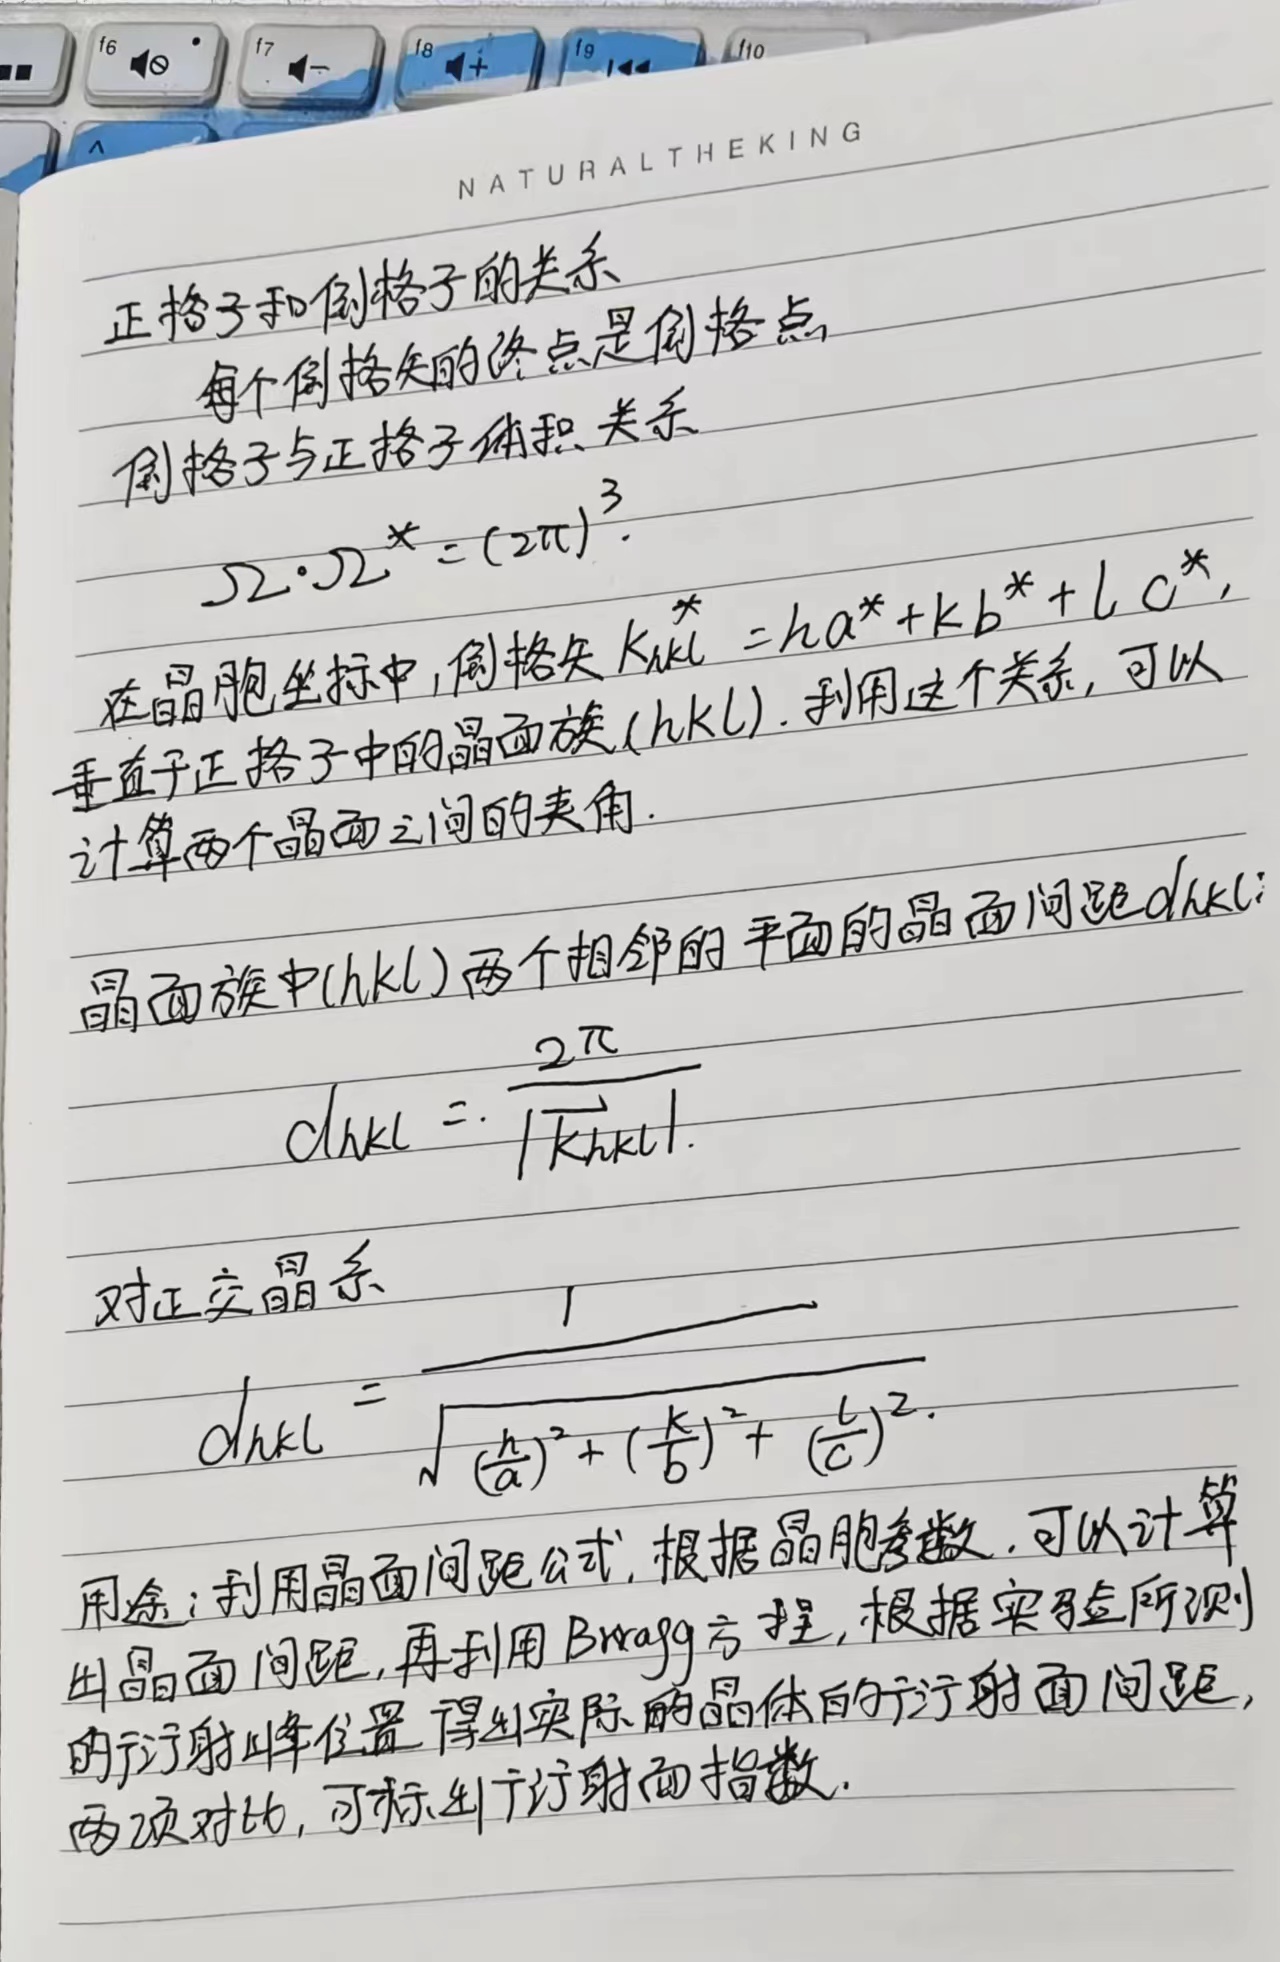 f6
f7
f8
f9
f10
NATURALTHEKING
正格子和倒格子的关系
每个倒格矢的终点是倒格点
倒格子与正格子体积关系
Ω·Ω* = (2π)³.
在晶胞坐标中,倒格矢 K*hkl = ha* + kb* + lc*,
垂直于正格子中的晶面族(hkl).利用这个关系,可以
计算两个晶面之间的夹角.
晶面族中(hkl)两个相邻的平面的晶面间距dhkl:
dhkl = 2π / |Khkl|.
对正交晶系
dhkl = 1 / √((h/a)² + (k/b)² + (l/c)²).
用途:利用晶面间距公式,根据晶胞参数.可以计算
出晶面间距,再利用Bragg方程,根据实验所测
的衍射峰位置 得出实际的晶体的衍射面间距,
两项对比,可标出衍射面指数.